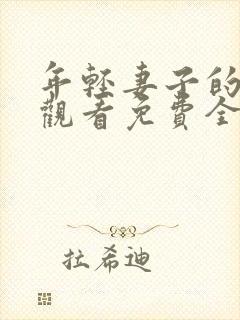 年輕妻子的
觀看免費全
拉希迪